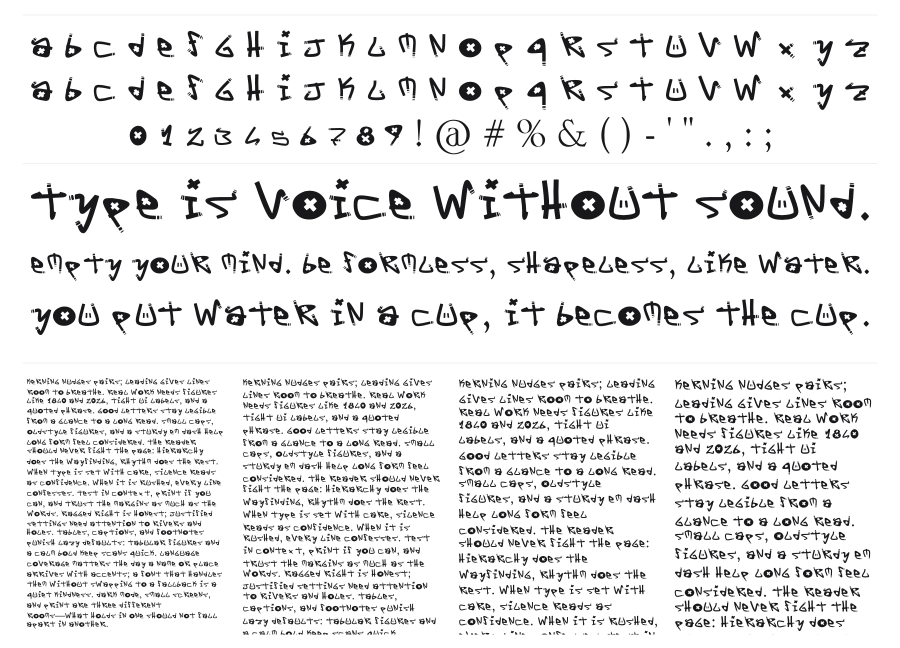 a b c d e f g h i j k l m n o p q r s t u v w x y z
a b c d e f g h i j k l m n o p q r s t u v w x y z
0 1 2 3 4 5 6 7 8 9 ! @ # % & ( ) - ' " . , : ;
Type is voice without sound.
Empty your mind. Be formless, shapeless, like water.
You put water in a cup, it becomes the cup.
Kerning nudges pairs; leading gives lines
room to breathe. Real work needs figures
like 1840 and 2026, tight UI labels, and a
quoted phrase. Good letters stay legible
from a glance to a long read. Small caps,
oldstyle figures, and a sturdy em dash help
long form feel considered. The reader
should never fight the page: hierarchy
does the wayfinding, rhythm does the rest.
When type is set with care, silence reads
as confidence. When it is rushed, every line
confesses. Test in context, print if you
can, and trust the margins as much as the
words. Ragged right is honest; justified
settings need attention to rivers and
holes. Tables, captions, and footnotes
punish lazy defaults: tabular figures and
a calm bold keep scans quick. Language
coverage matters the day a name or place
arrives with accents; a font that handles
them without swapping to a fallback is a
quiet kindness. Dark mode, small screens,
and print are three different
rooms—what holds in one should not fall
apart in another.
Kerning nudges pairs; leading gives
lines room to breathe. Real work
needs figures like 1840 and 2026,
tight UI labels, and a quoted
phrase. Good letters stay legible
from a glance to a long read. Small
caps, oldstyle figures, and a
sturdy em dash help long form feel
considered. The reader should never
fight the page: hierarchy does the
wayfinding, rhythm does the rest.
When type is set with care, silence
reads as confidence. When it is
rushed, every line confesses. Test
in context, print if you can, and
trust the margins as much as the
words. Ragged right is honest;
justified settings need attention
to rivers and holes. Tables,
captions, and footnotes punish
lazy defaults: tabular figures and
a calm bold keep scans quick.
Kerning nudges pairs; leading
gives lines room to breathe.
Real work needs figures like
1840 and 2026, tight UI
labels, and a quoted phrase.
Good letters stay legible
from a glance to a long read.
Small caps, oldstyle
figures, and a sturdy em dash
help long form feel
considered. The reader
should never fight the page:
hierarchy does the
wayfinding, rhythm does the
rest. When type is set with
care, silence reads as
confidence. When it is rushed,
Kerning nudges pairs;
leading gives lines room
to breathe. Real work
needs figures like 1840
and 2026, tight UI
labels, and a quoted
phrase. Good letters
stay legible from a
glance to a long read.
Small caps, oldstyle
figures, and a sturdy em
dash help long form feel
considered. The reader
should never fight the
page: hierarchy does